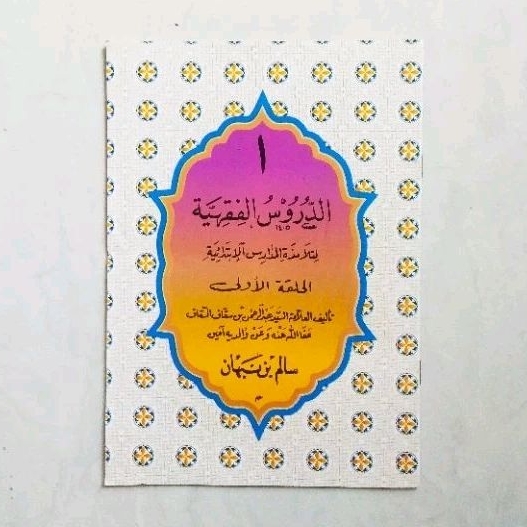 ١
الدُّرُوْسُ الفِقْهِيَّة
لتلامذة المدارس الإبتدائية
الحلقة الأولى
تأليف العلامة السيد عبد الرحمن بن سقاف السقاف
عفا الله عنه وعن والديه آمين
سالم بن نبهان